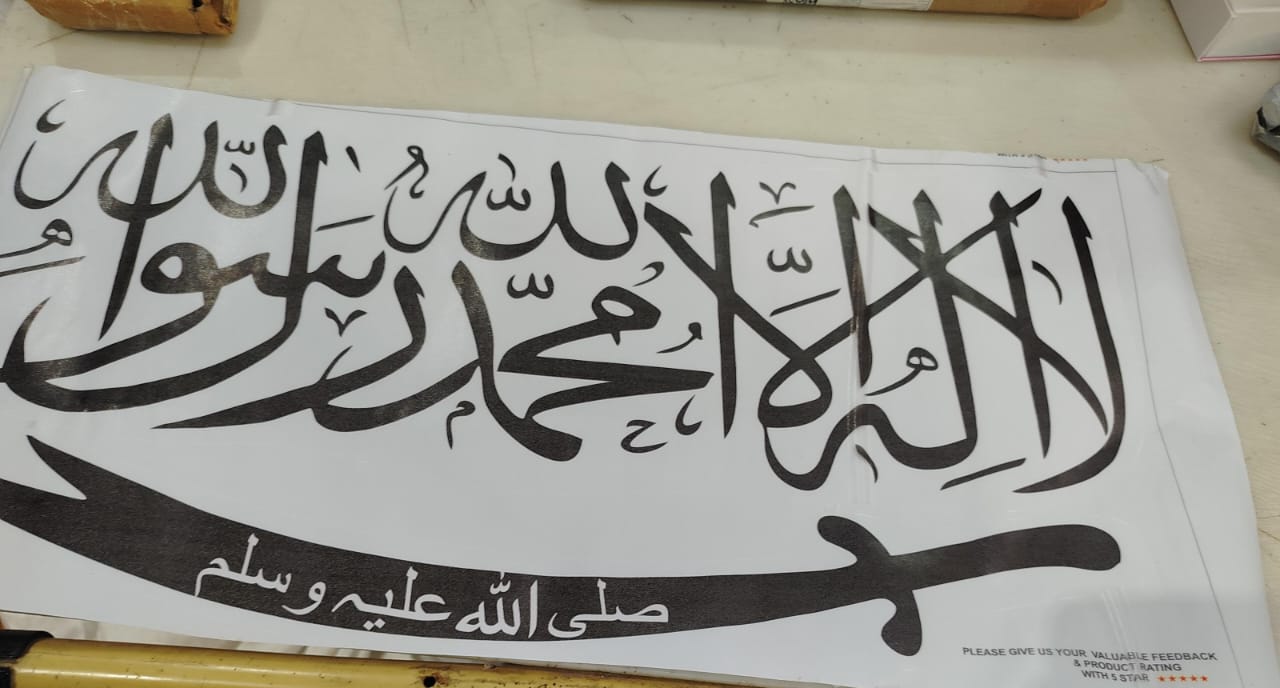 لا إله إلا الله محمد رسول الله
صلى الله عليه وسلم
PLEASE GIVE US YOUR VALUABLE FEEDBACK
& PRODUCT RATING
WITH 5 STAR ★★★★★